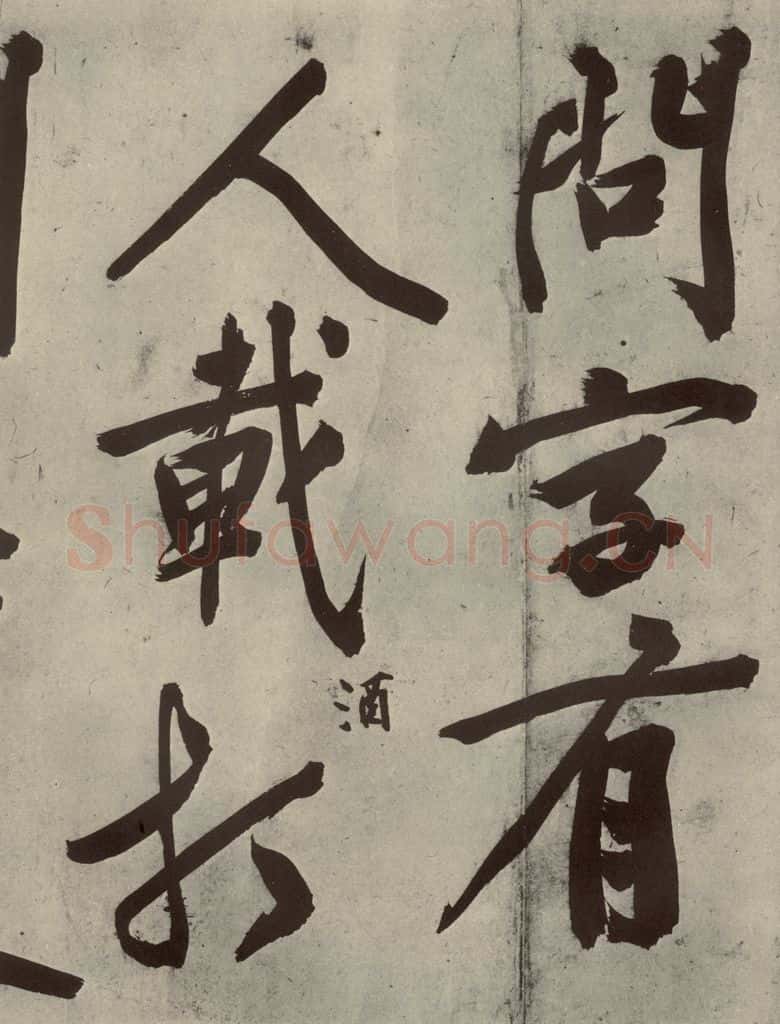 問字有
人載酒於
Shufawang.CN